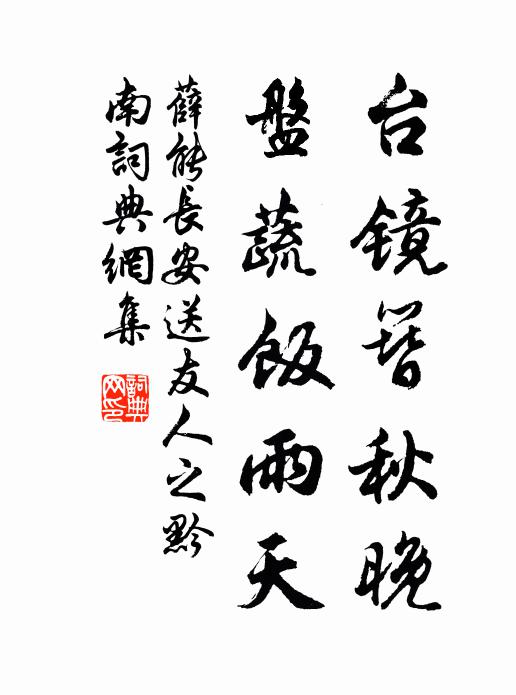 台镜簪秋晚
盤蔬飯雨天
薛能長安送友人之黔
南詞典網集
詞典网印